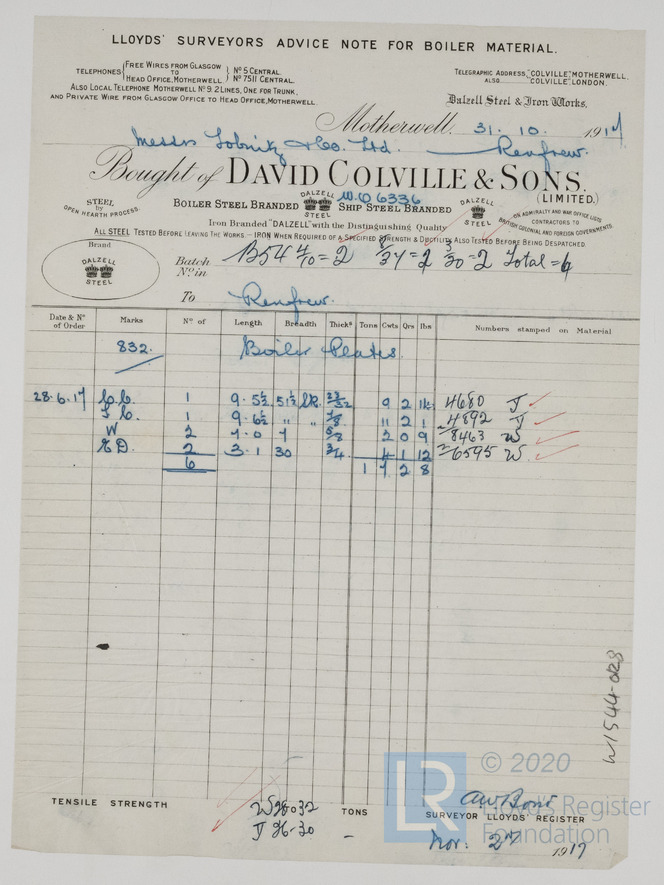 LLOYDS' SURVEYORS ADVICE NOTE FOR BOILER MATERIAL.
TELEPHONES { FREE WIRES FROM GLASGOW TO HEAD OFFICE, MOTHERWELL } Nº 5 CENTRAL. Nº 7511 CENTRAL.
ALSO LOCAL TELEPHONE MOTHERWELL Nº 9. 2 LINES, ONE FOR TRUNK,
AND PRIVATE WIRE FROM GLASGOW OFFICE TO HEAD OFFICE, MOTHERWELL.
TELEGRAPHIC ADDRESS, "COLVILLE", MOTHERWELL.
ALSO "COLVILLE", LONDON.
Dalzell Steel & Iron Works.
Motherwell, 31. 10. 1917
Messrs Lobnitz & Co. Ltd. Renfrew.
Bought of DAVID COLVILLE & SONS.
(LIMITED.)
STEEL by OPEN HEARTH PROCESS.
BOILER STEEL BRANDED DALZELL STEEL W.O 6336 SHIP STEEL BRANDED DALZELL STEEL
ON ADMIRALTY AND WAR OFFICE LISTS
CONTRACTORS TO
BRITISH COLONIAL AND FOREIGN GOVERNMENTS.
Iron Branded "DALZELL" with the Distinguishing Quality
ALL STEEL TESTED BEFORE LEAVING THE WORKS — IRON WHEN REQUIRED OF A SPECIFIED STRENGTH & DUCTILITY, ALSO TESTED BEFORE BEING DESPATCHED
Brand
DALZELL
STEEL
Batch Nº in B54 4/10 = 2 8/34 = 2 3/30 = 2 Total = 6
To Renfrew.
Date & Nº of Order Marks Nº of Length Breadth Thickˢ Tons Cwts Qrs lbs Numbers stamped on Material
832. Boiler Plates
28.6.17 1 9. 5½ 51½ 23/32 9 2 4680 J
1 9. 6½ " " 7/8 11 2 1 4892 J
W 2 7. 0 5/8 2 0 9 8463 W
2 3. 1 30 3/4 4 1 12 6595 W
6 1 7 2 8
W1544-0128
TENSILE STRENGTH W 28-032 TONS
J 26-30
SURVEYOR LLOYDS' REGISTER
Nov: 2nd 1917
LR © 2020
Lloyd's Register
Foundation